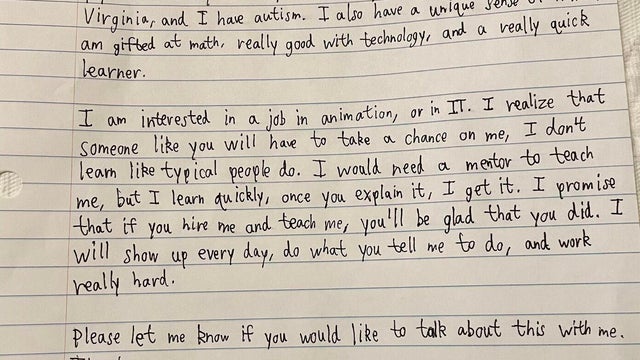 Virginia, and I have autism. I also have a unique sense
am gifted at math, really good with technology, and a really quick
learner.
I am interested in a job in animation, or in IT. I realize that
someone like you will have to take a chance on me, I don't
learn like typical people do. I would need a mentor to teach
me, but I learn quickly, once you explain it, I get it. I promise
that if you hire me and teach me, you'll be glad that you did. I
will show up every day, do what you tell me to do, and work
really hard.
Please let me know if you would like to talk about this with me.